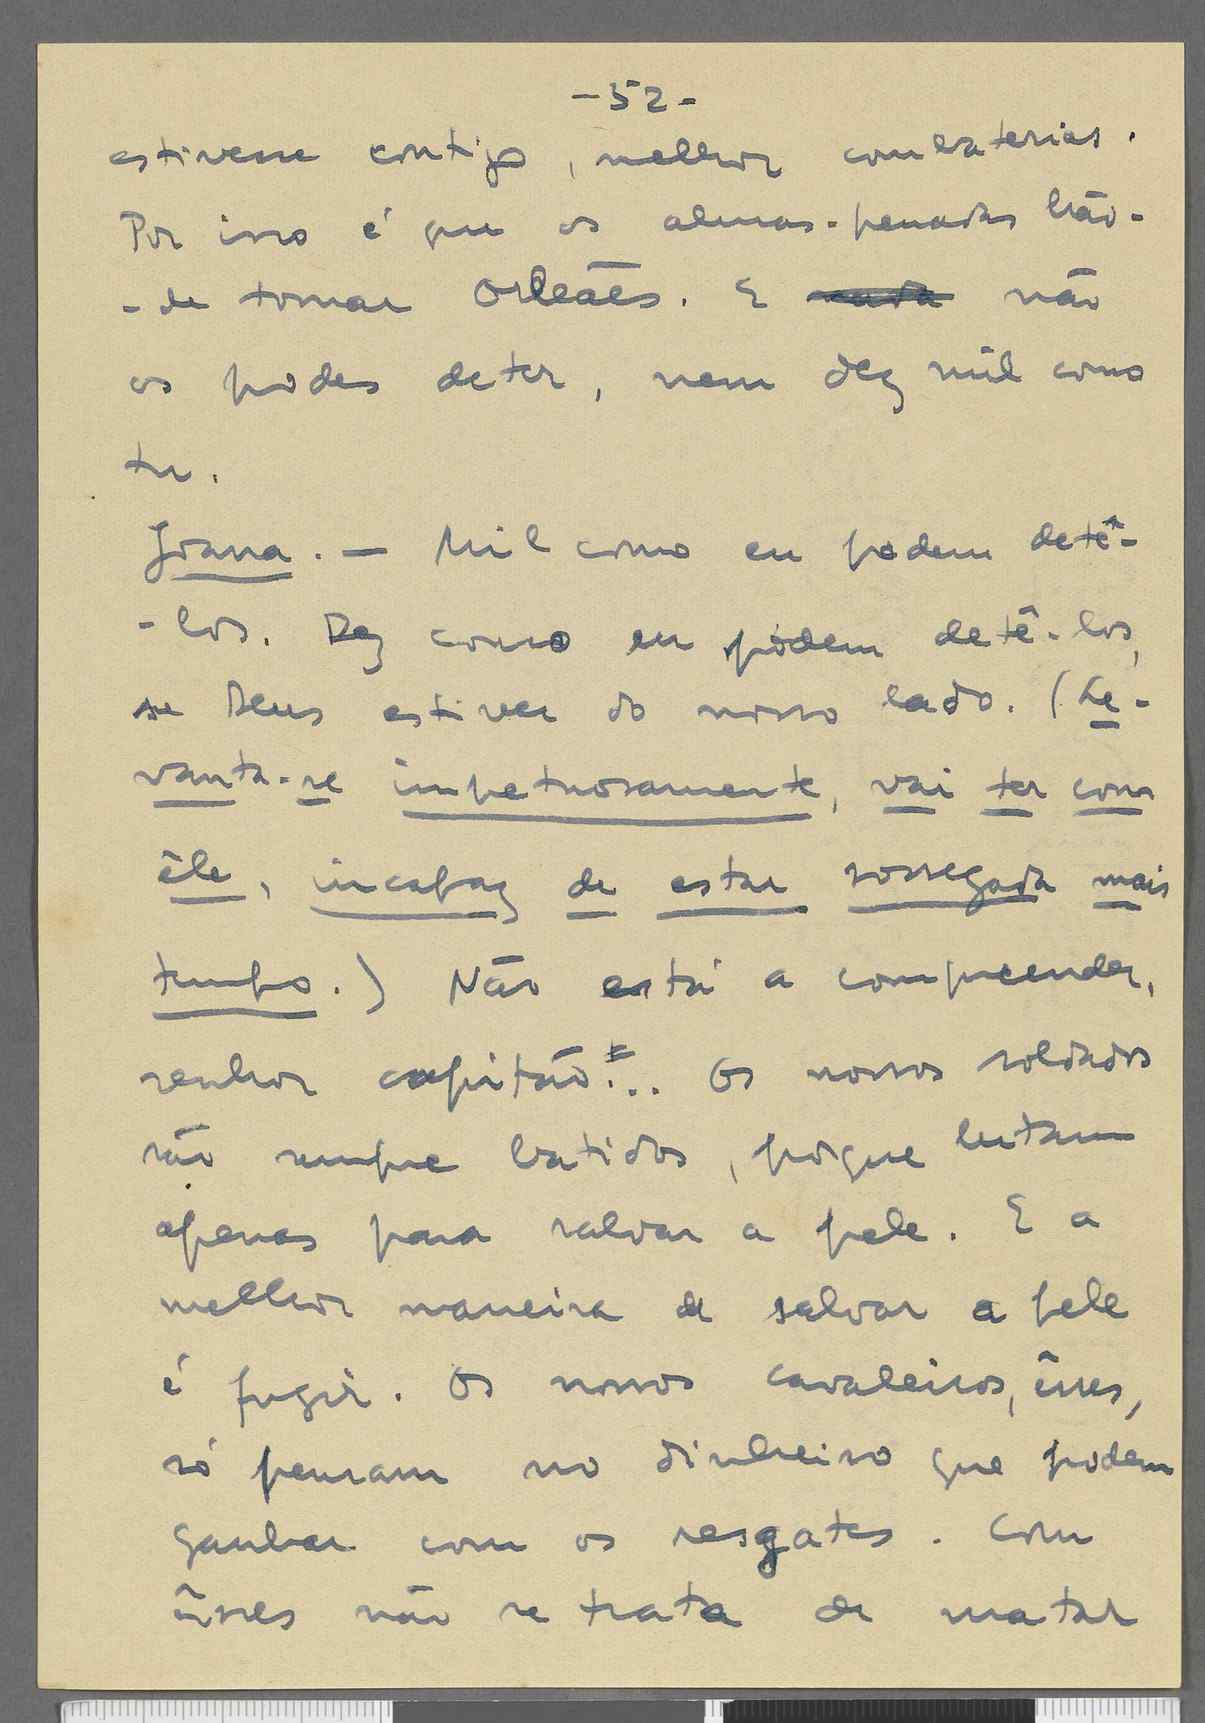 -52-
estivesse contigo, melhor combaterias.
Por isso é que os almas-penadas hão-
-de tomar Orleães. E não
os podes deter, nem dez mil como
tu.
Joana. — Mil como eu podem detê-
-los. Dez como eu podem detê-los,
se Deus estiver do nosso lado. (Le-
vanta-se impetuosamente, vai ter com
êle, incapaz de estar sossegada mais
tempo.) Não está a compreender,
senhor capitão... Os nossos soldados
são sempre batidos, porque lutam
apenas para salvar a pele. E a
melhor maneira de salvar a pele
é fugir. Os nossos cavaleiros, êsses,
só pensam no dinheiro que podem
ganhar com os resgates. Com
êsses não se trata de matar